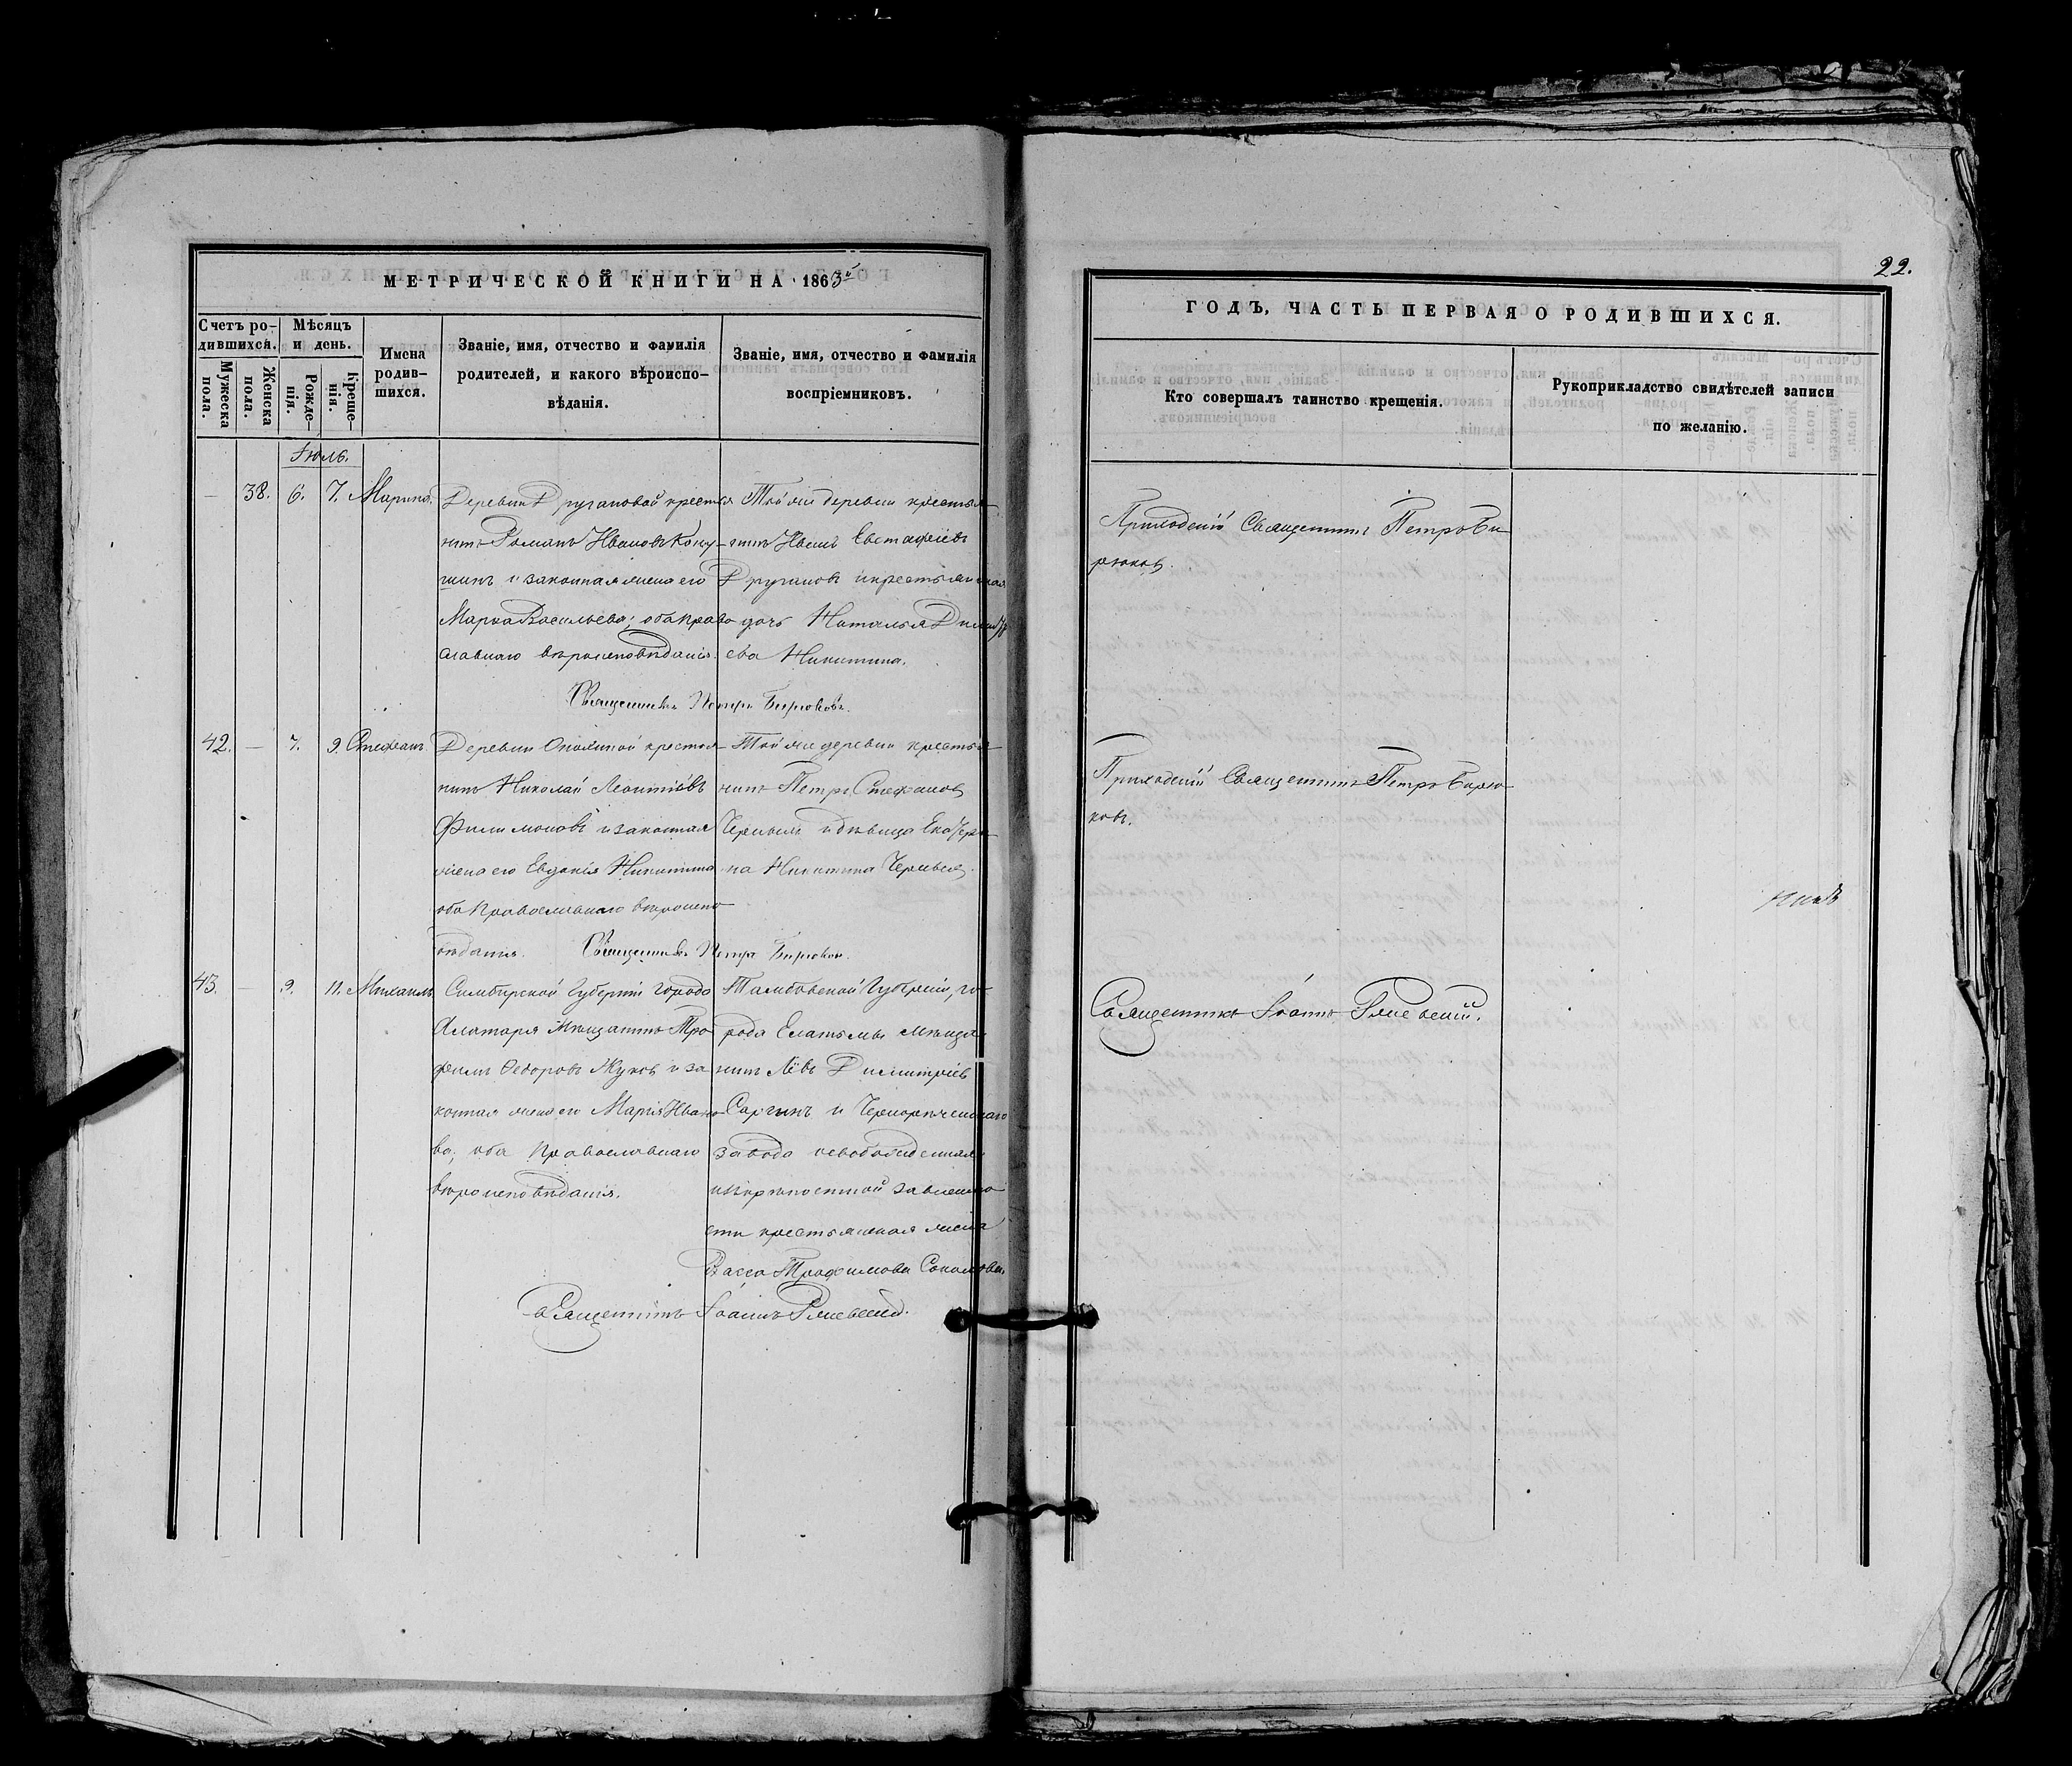 МЕТРИЧЕСКОЙ КНИГИ НА 1863й
Счетъ ро-
дившихся.
Мѣсяцъ
и день.
Мужеска
пола.
Женска
пола.
Рожде-
нія.
Креще-
нія.
Имена
родив-
шихся.
Званіе, имя, отчество и фамилія
родителей, и какого вѣроиспо-
вѣданія.
Званіе, имя, отчество и фамилія
воспріемниковъ.
Іюль.
— 38. 6. 7. Марина.
Деревни Другановой крестья
нинъ Романъ Ивановъ
и законная жена его
Марѳа Васильева; оба право
славнаго вѣроисповѣданія.
Той же деревни крестья
нинъ Иванъ Евстафіевъ
Другановъ и крестьянская
дочь Наталья Димитрі
ева Никитина.
Священникъ Петръ Бирюковъ.
42. — 7. 9. Стефанъ.
Деревни крестья
нинъ Николай Леонтіевъ
Филимоновъ и законная
жена его Евдокія Никитина
оба православнаго вѣроиспо
вѣданія.
Той же деревни крестья
нинъ Петръ Стефановъ
и дѣвица Екатери
на Никитина
Священникъ Петръ Бирюковъ.
43. — 9. 11. Михаилъ
Симбирской Губерніи города
Алатыря Мѣщанинъ Тро
фимъ Ѳедоровъ Жуковъ и за
конная жена его Марія Ивано
ва, оба православнаго
вѣроисповѣданія.
Тамбовской Губерніи, го
рода Елатьмы мѣща
нинъ Левъ Димитріев
Саргинъ и Чернорѣченскаго
завода освобожденная
и крѣпостной зависимо
сти крестьянская жена
Васса Трофимова Соколова.
Священникъ Іоаннъ Ряжевскій.
22.
ГОДЪ, ЧАСТЬ ПЕРВАЯ О РОДИВШИХСЯ.
Кто совершалъ таинство крещенія.
Рукоприкладство свидѣтелей записи
по желанію.
Приходскій Священникъ Петръ Би
рюковъ.
Приходскій Священникъ Петръ Бирю
ковъ.
Священникъ Іоаннъ Ряжевскій.